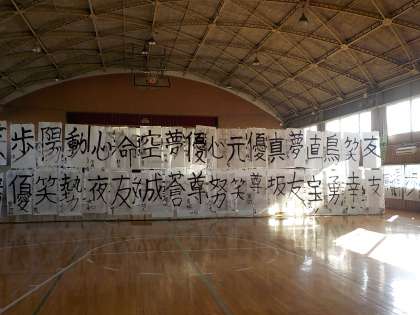 歩陽動心命空夢優心元優真夢直鳥笑友
優笑勢夜友誠蒼尊努笑尊坂友宝勇幸支